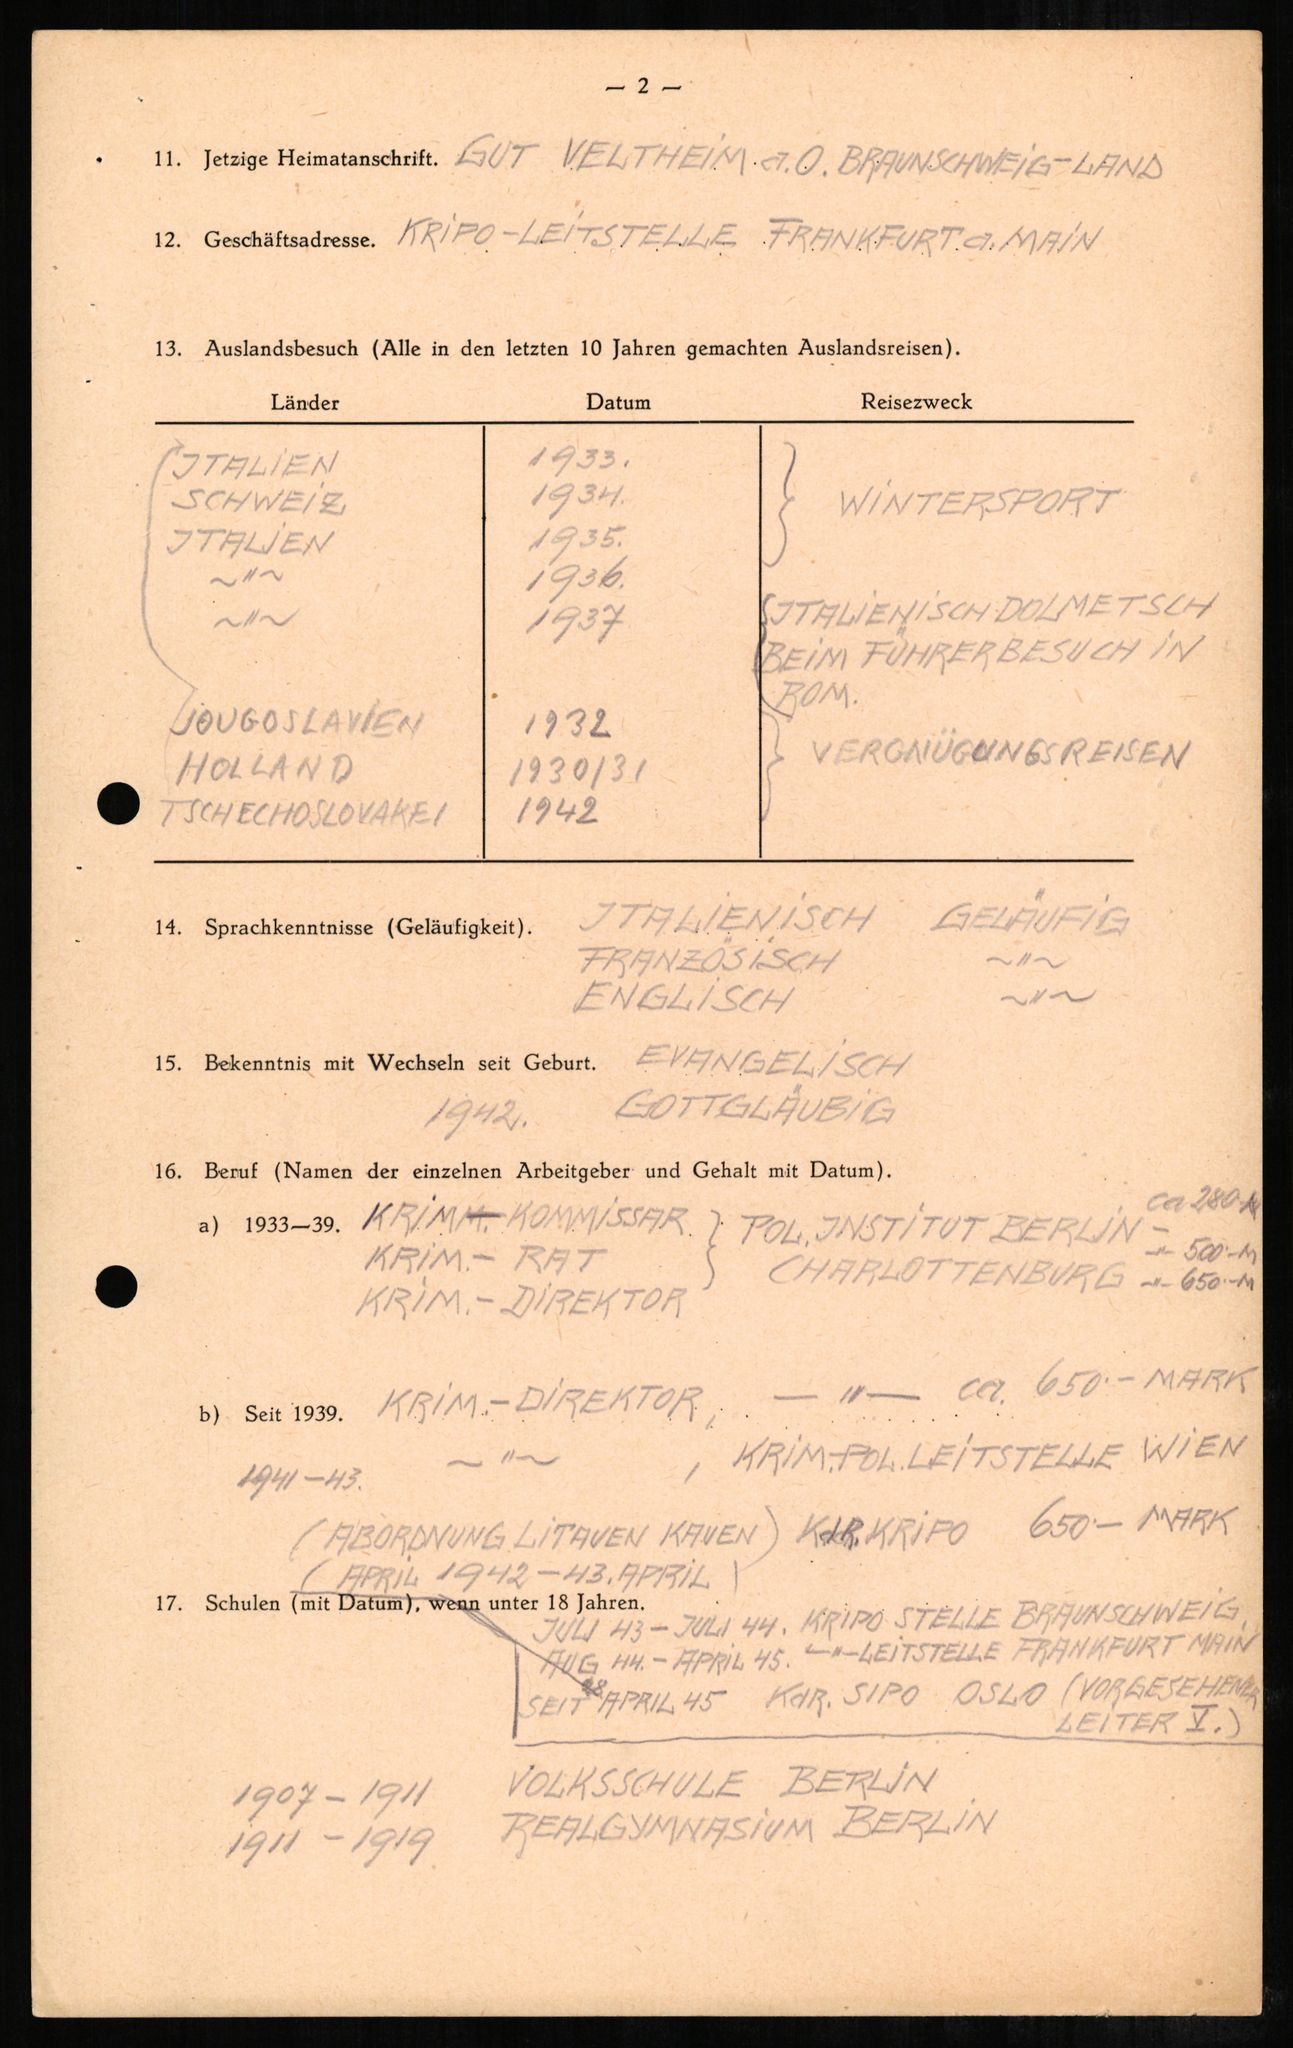 — 2 —
11. Jetzige Heimatanschrift. GUT VELTHEIM a.O. BRAUNSCHWEIG-LAND
12. Geschäftsadresse. KRIPO-LEITSTELLE FRANKFURT a. MAIN
13. Auslandsbesuch (Alle in den letzten 10 Jahren gemachten Auslandsreisen).
Länder Datum Reisezweck
ITALIEN 1933.
SCHWEIZ 1934. WINTERSPORT
ITALIEN 1935.
~"~ 1936.
~"~ 1937 ITALIENISCH-DOLMETSCH
BEIM FÜHRERBESUCH IN
ROM.
JOUGOSLAVIEN 1932
HOLLAND 1930/31 VERGNÜGUNGSREISEN
TSCHECHOSLOVAKEI 1942
14. Sprachkenntnisse (Geläufigkeit). ITALIENISCH GELÄUFIG
FRANZÖSISCH ~"~
ENGLISCH ~"~
15. Bekenntnis mit Wechseln seit Geburt. EVANGELISCH
1942. GOTTGLÄUBIG
16. Beruf (Namen der einzelnen Arbeitgeber und Gehalt mit Datum).
a) 1933—39. KRIM.-KOMMISSAR POL. INSTITUT BERLIN- ca 280.-M
KRIM.- RAT CHARLOTTENBURG -"- 500.-M
KRIM.- DIREKTOR -"- 650.-M
b) Seit 1939. KRIM.-DIREKTOR, —"— ca. 650.- MARK
1941-43. ~"~, KRIM.POL.LEITSTELLE WIEN
(ABORDNUNG LITAUEN KAUEN) KdR. KRIPO 650.- MARK
(APRIL 1942-43. APRIL)
17. Schulen (mit Datum), wenn unter 18 Jahren.
JULI 43 - JULI 44. KRIPO STELLE BRAUNSCHWEIG
AUG 44. - APRIL 45. -"-LEITSTELLE FRANKFURT MAIN
SEIT 28 APRIL 45 KdR. SIPO OSLO (VORGESEHENER
LEITER V.)
1907 - 1911 VOLKSSCHULE BERLIN
1911 - 1919 REALGYMNASIUM BERLIN